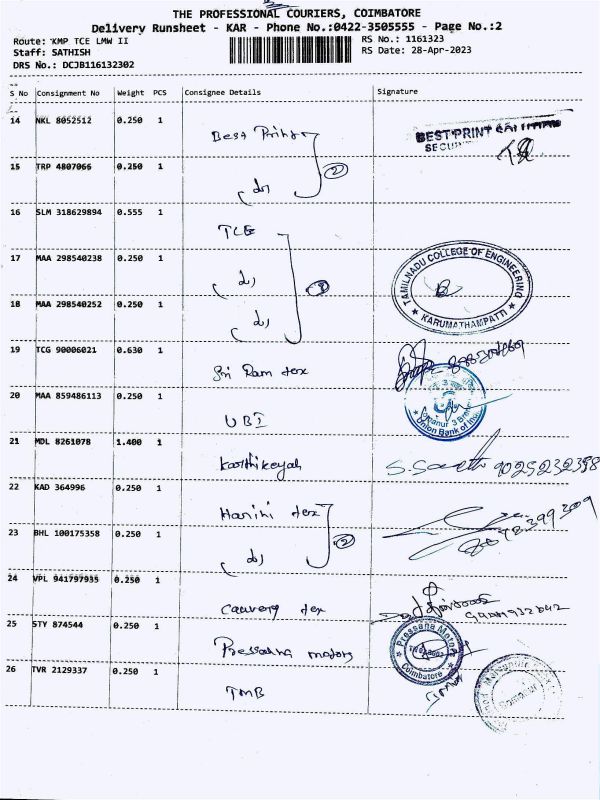 THE PROFESSIONAL COURIERS, COIMBATORE
Delivery Runsheet - KAR - Phone No.:0422-3505555 - Page No.:2
Route: KMP TCE LMW II
RS No.: 1161323
Staff: SATHISH
RS Date: 28-Apr-2023
DRS No.: DCJB116132302
S No Consignment No Weight PCS Consignee Details Signature
14 NKL 8052512 0.250 1
BEST PRINT
15 TRP 4807066 0.250 1
(2)
16 SLM 318629894 0.555 1
TCE
17 MAA 298540238 0.250 1
TAMILNADU COLLEGE OF ENGINEERING
★ KARUMATHAMPATTI ★
18 MAA 298540252 0.250 1
19 TCG 90006021 0.630 1
Sri Ram tex
20 MAA 859486113 0.250 1
UBI
Union Bank of India
21 MDL 8261078 1.400 1
Karthikeyah
9025232398
22 KAD 364996 0.250 1
Harini tex
23 BHL 100175358 0.250 1
(2)
24 VPL 941797935 0.250 1
Cauvery tex
25 STY 874544 0.250 1
Pressanna motors
Pressana Motors
Coimbatore
26 TVR 2129337 0.250 1
TMB